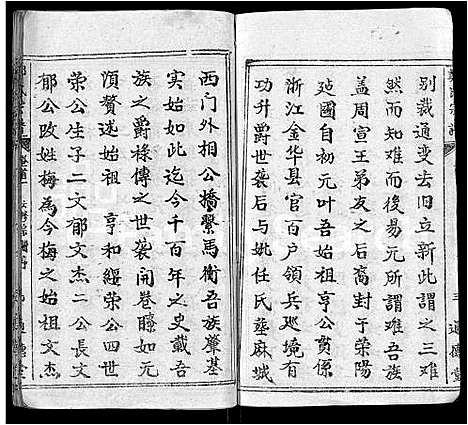 別裁通变去旧立新此謂之三难
然而知难而得易元所謂难吾族
盖周宣王弟友之后裔封于荣陽
延國自初元叶吾始祖亨公貫係
浙江金华县官百户領兵巡境有
功升官世袭后与姚任氏塟麻城
西门外相公橋繫馬衡吾族肇基
实始如此迄今千百年之史載吾
族之爵祿傳之世袭開卷瞭如元
湏贅述始祖亨和綬荣公四世
荣公生子二文郁文杰二公長文
郁公改姓梅為今梅之始祖文杰